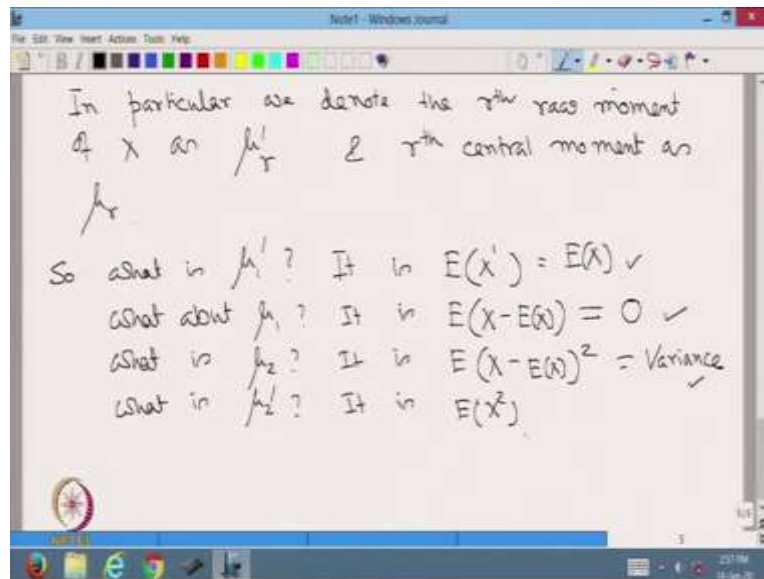 Note1 - Windows Journal
File Edit View Insert Actions Tools Help
In particular we denote the rth raw moment
of X as μ'r & rth central moment as
μr
So what is μ1'? It is E(X¹) = E(X) ✓
What about μ1? It is E(X-E(X)) = 0 ✓
What is μ2? It is E(X-E(X))² = Variance ✓
What is μ2'? It is E(X²)
NPTEL